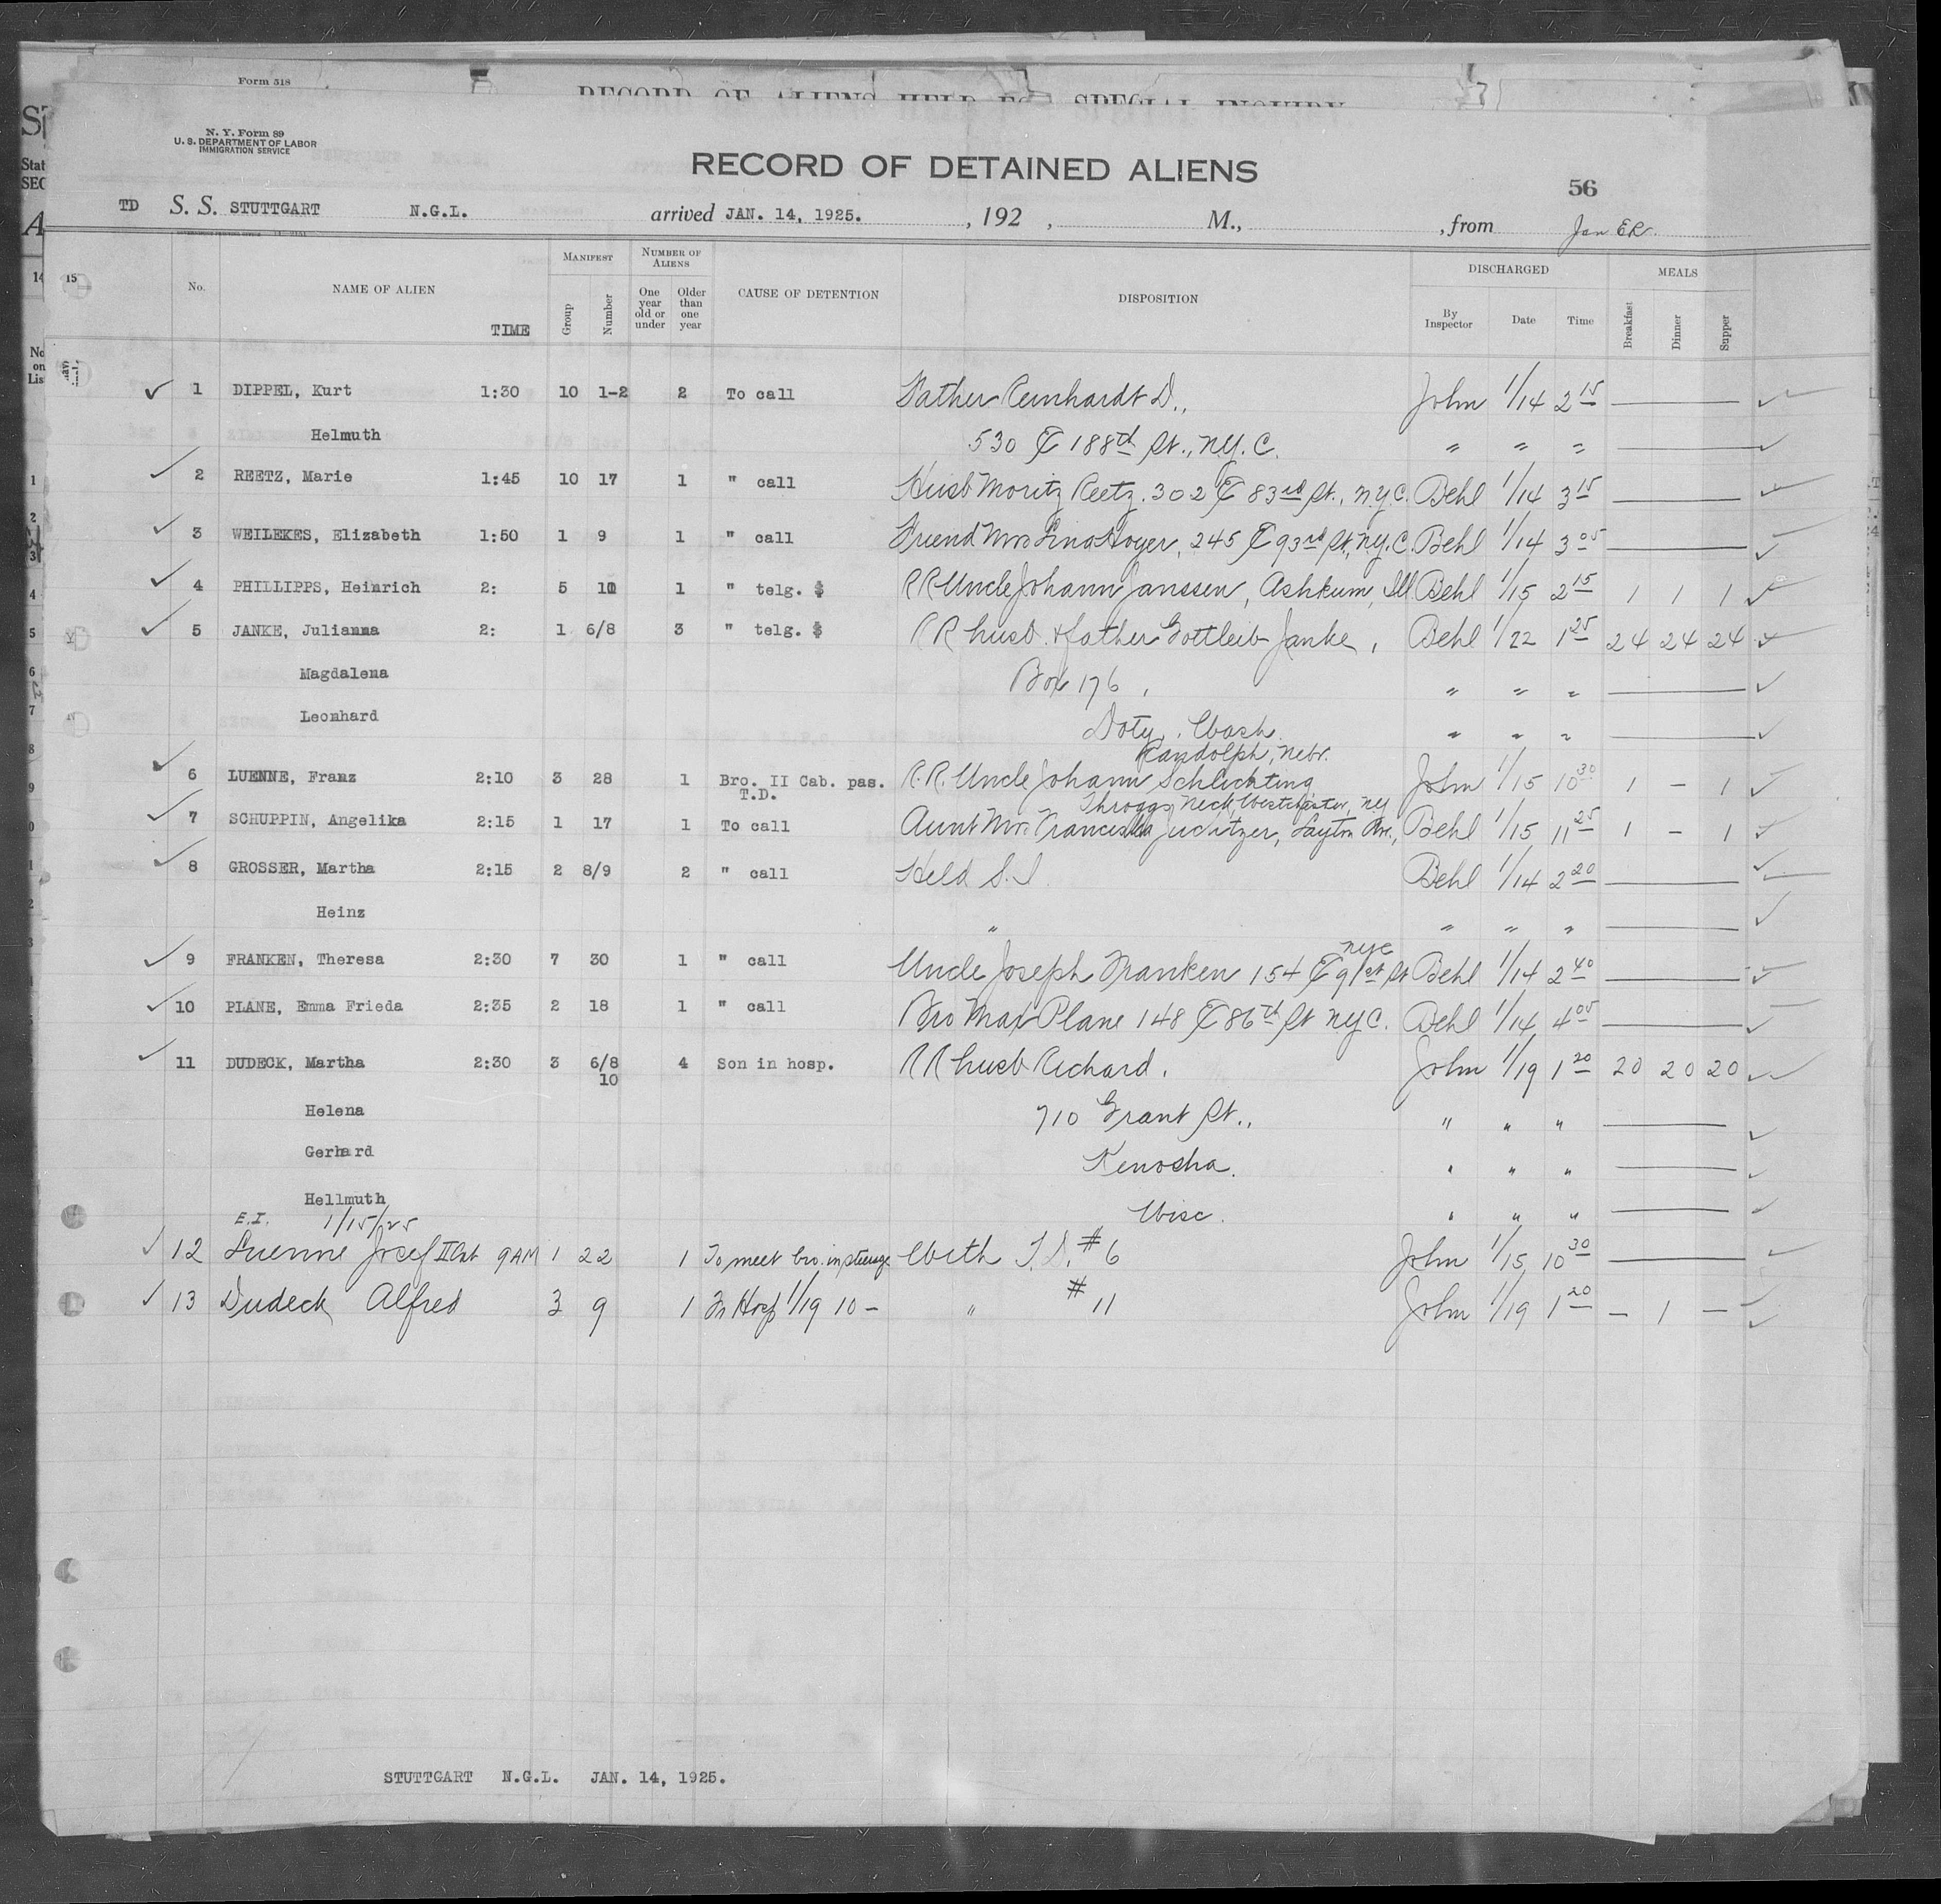 Form 518
RECORD OF ALIENS HELD FOR SPECIAL INQUIRY
N. Y. Form 89
U. S. DEPARTMENT OF LABOR
IMMIGRATION SERVICE
RECORD OF DETAINED ALIENS
56
TD S. S. STUTTGART N.G.L. arrived JAN. 14, 1925. , 192 , M., , from Jan
No. NAME OF ALIEN TIME MANIFEST Group Number NUMBER OF ALIENS One year old or under Older than one year CAUSE OF DETENTION DISPOSITION DISCHARGED By Inspector Date Time MEALS Breakfast Dinner Supper
1 DIPPEL, Kurt 1:30 10 1-2 2 To call Father Reinhardt D., John 1/14 2 15
Helmuth 530 E 188th St., N.Y.C. " " "
2 REETZ, Marie 1:45 10 17 1 " call Husb Moritz Reetz. 302 E 83rd St., N.Y.C. Behl 1/14 3 15
3 WEILEKES, Elizabeth 1:50 1 9 1 " call Friend Mrs Lina Hoyer, 245 E 93rd St, N.Y.C. Behl 1/14 3 05
4 PHILLIPPS, Heinrich 2: 5 10 1 " telg. $ RR Uncle Johann Janssen, Ashkum, Ill Behl 1/15 2 15 1 1 1
5 JANKE, Julianna 2: 1 6/8 3 " telg. $ RR husb. & father Gottleib Janke, Behl 1/22 1 25 24 24 24
Magdalena Box 176, " " "
Leonhard Doty, Wash. " " "
Randolph, Nebr.
6 LUENNE, Franz 2:10 3 28 1 Bro. II Cab. pas. T.D. R.R. Uncle Johann Schlichting John 1/15 10 30 1 - 1
Throggs Neck, Westchester, NY
7 SCHUPPIN, Angelika 2:15 1 17 1 To call Aunt Mrs Franciska Juditzer, Layton Ave., Behl 1/15 11 25 1 - 1
8 GROSSER, Martha 2:15 2 8/9 2 " call Held S.I Behl 1/14 2 20
Heinz " " " "
9 FRANKEN, Theresa 2:30 7 30 1 " call Uncle Joseph Franken 154 E 91st St NYC Behl 1/14 2 40
10 PLANE, Emma Frieda 2:35 2 18 1 " call Bro Max Plane 148 E 86th St NYC. Behl 1/14 4 05
11 DUDECK, Martha 2:30 3 6/8 10 4 Son in hosp. RR husb Richard. John 1/19 1 20 20 20 20
Helena 710 Grant St., " " "
Gerhard Kenosha. " " "
Hellmuth Wisc. " " "
E.I. 1/15/25
12 Luenne Josef II Cab 9 AM 1 22 1 To meet bro. in steerage With T.D. #6 John 1/15 10 30
13 Dudeck Alfred 3 9 1 In Hosp 1/19 10 - " #11 John 1/19 1 20 - 1 -
STUTTGART N.G.L. JAN. 14, 1925.